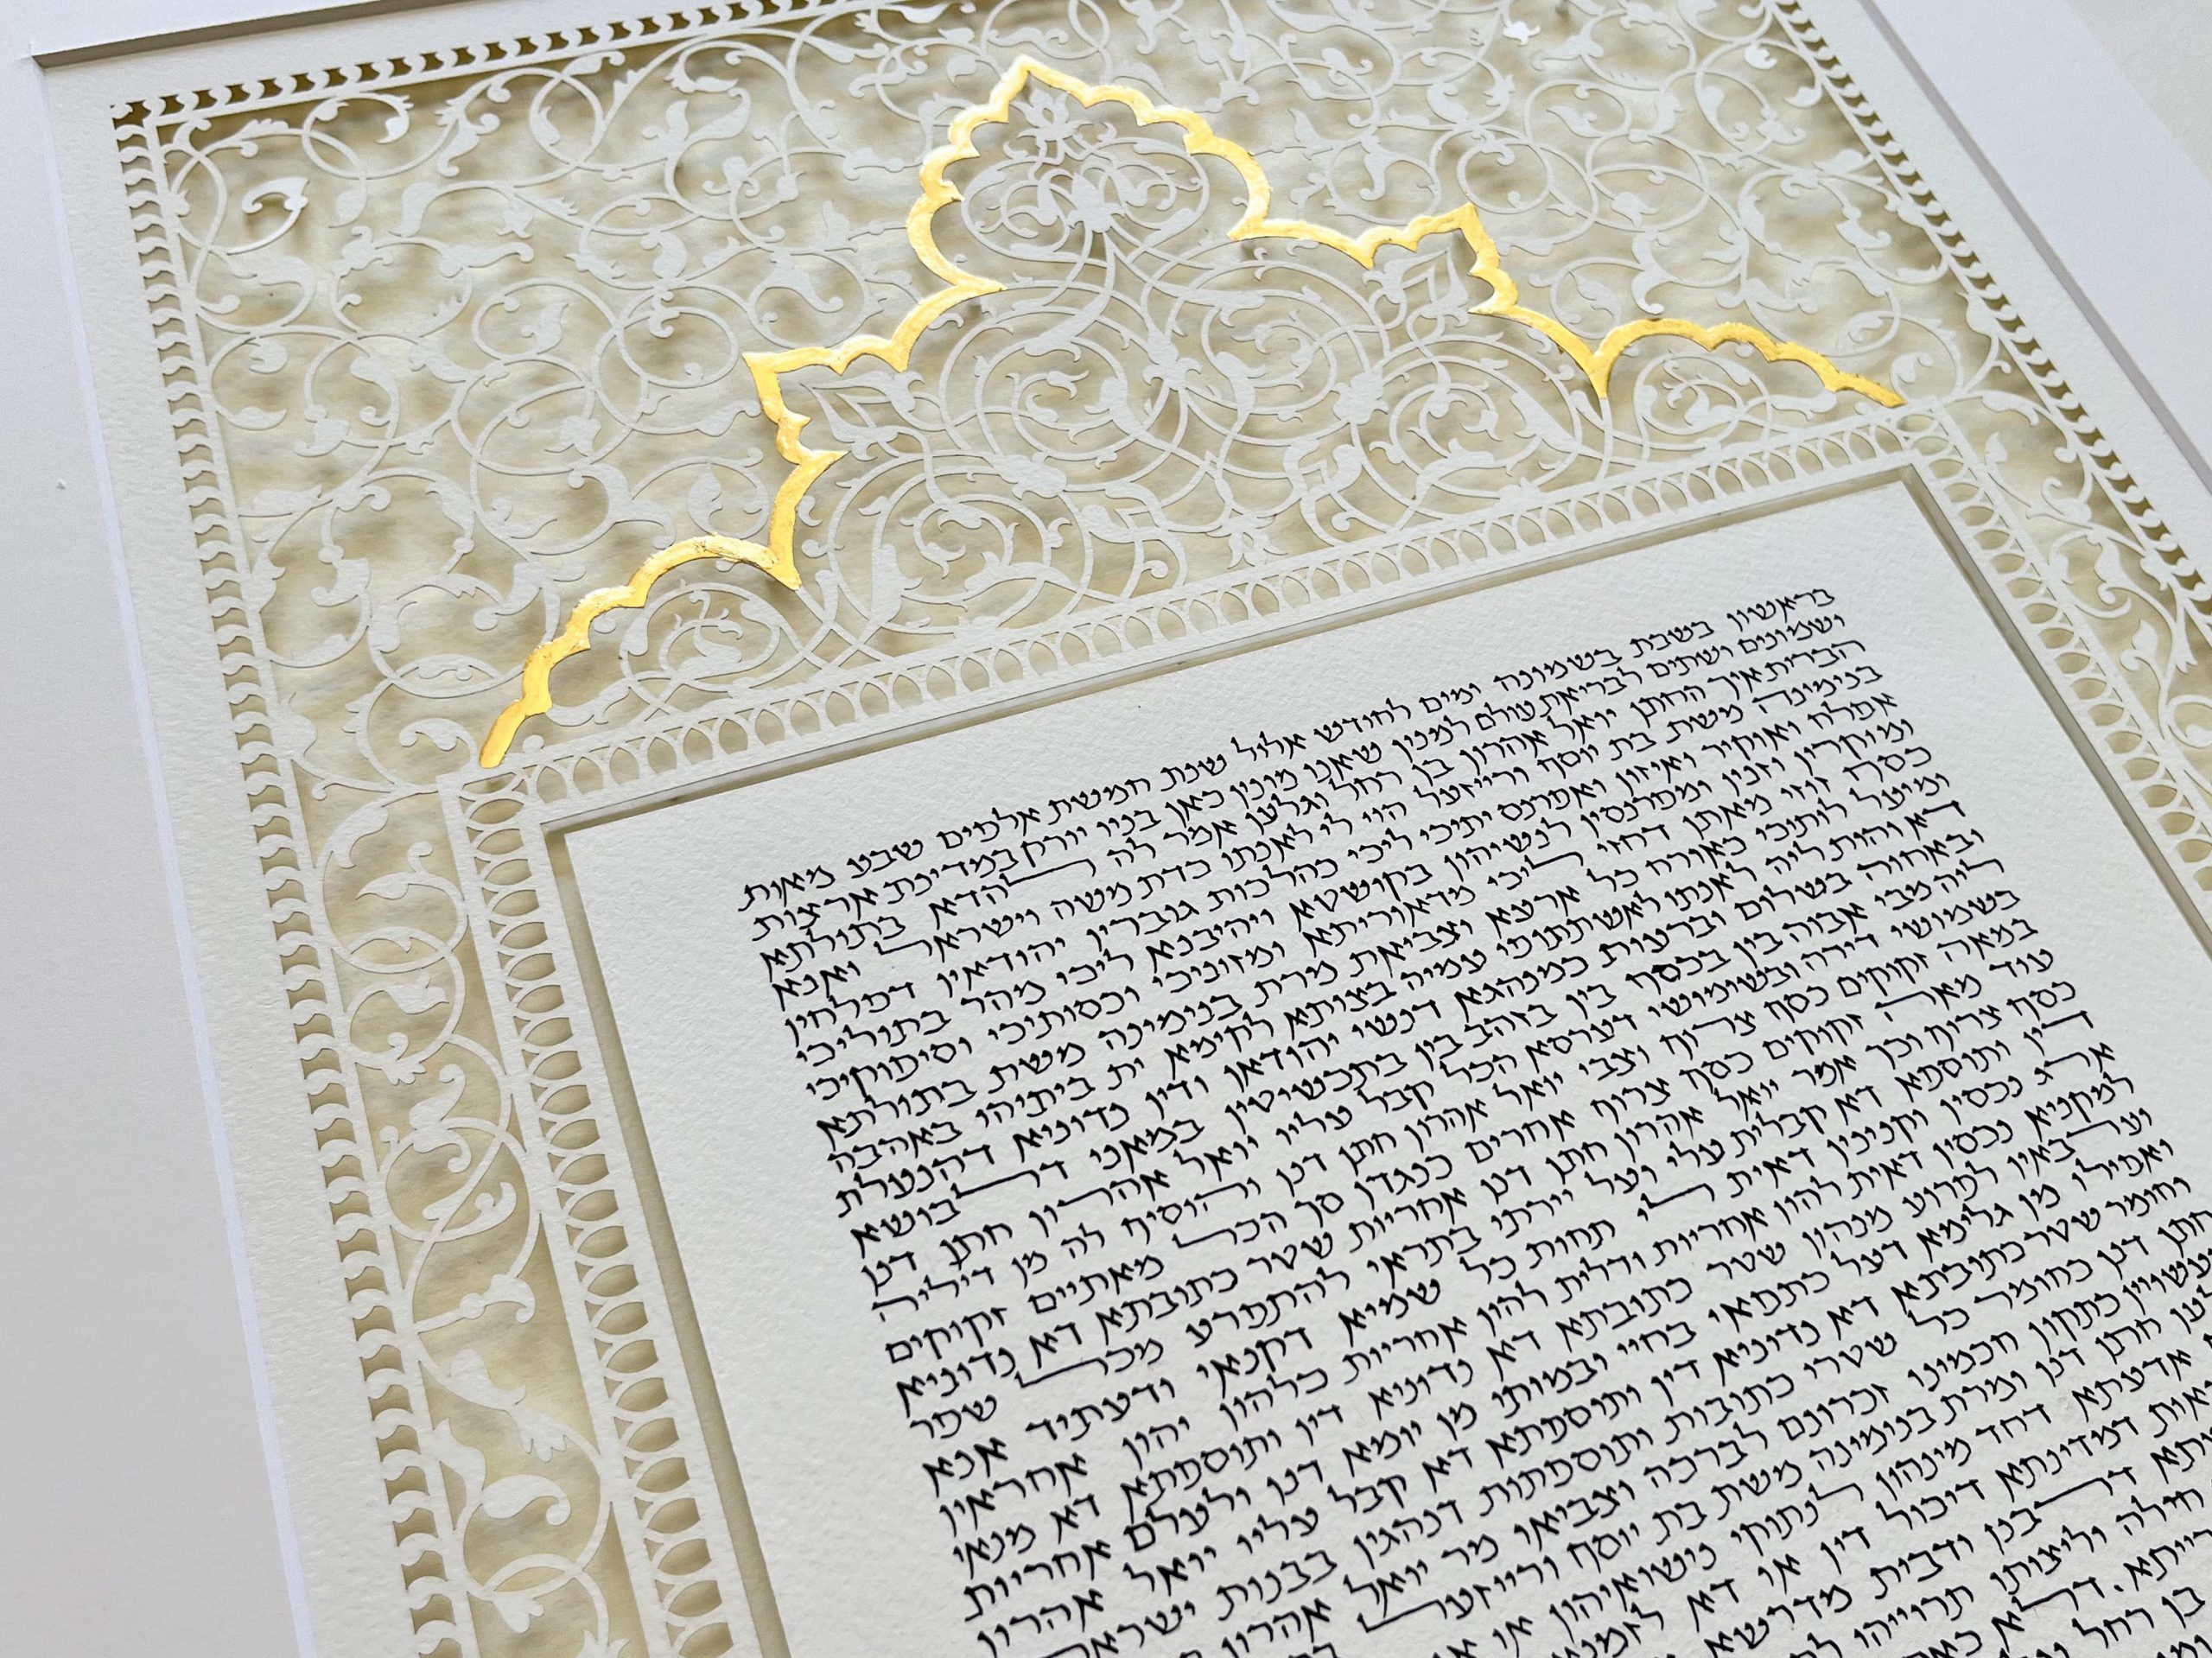 בראשון בשבת בשמונה ימים לחודש אלול שנת חמשת אלפים שבע מאות
ושמונים ושתים לבריאת עולם למנין שאנו מונין כאן בניו יורק במדינת ארצות
הברית איך החתן יואל אהרון בן רחל וגלען אמר לה להדא בתולתא
בנימינה משת בת יוסף ורייזעל הוי לי לאנתו כדת משה וישראל ואנא
אפלח ואוקיר ואיזון ואפרנס יתיכי ליכי כהלכות גוברין יהודאין דפלחין
ומוקרין וזנין ומפרנסין לנשיהון בקושטא ויהיבנא ליכי מהר בתוליכי
כסף זוזי מאתן דחזי ליכי מדאוריתא ומזוניכי וכסותיכי וסיפוקיכי
ומיעל לותיכי כאורח כל ארעא וצביאת מרת בנימינה משת בתולתא
דא והות ליה לאנתו לאשתתופי עמיה בצותא לקימא ית ביתיהו באהבה
ובאחוה בשלום וברעות כמנהגא דנשי יהודאן ודין נדוניא דהנעלת
ליה מבי אבוה בין בכסף בין בזהב בין בתכשיטין במאני דלבושא
בשמושי דירה ובשימושי דערסא הכל קבל עליו יואל אהרון חתן דנן
במאה זקוקים כסף צרוף וצבי יואל אהרון חתן דנן והוסיף לה מן דיליה
עוד מאה זקוקים כסף צרוף אחרים כנגדן סך הכל מאתיים זקוקים
כסף צרוף וכך אמר יואל אהרון חתן דנן אחריות שטר כתובתא דא נדוניא
דין ותוספא דא קבלית עלי ועל יירתי בתראי להתפרע מכל שפר
ארג נכסין וקנינין דאית לי תחות כל שמיא דקנאי ודעתיד אנא
למקניא נכסין דאית להון אחריות ודלית להון אחריות כלהון יהון אחראין
וערבאין לפרוע מנהון שטר כתובתא דא נדוניא דין ותוספתא דא מנאי
ואפילו מן גלימא דעל כתפאי בחיי ובמותי מן יומא דנן ולעלם אחריות
וחומר שטר כתובתא דא נדוניא דין ותוספתא דא קבל עליו יואל אהרון
חתן דנן כחומר כל שטרי כתובות ותוספתות דנהגין בבנות ישראל
העשויין כתקון חכמינו זכרונם לברכה וצביאו מר יואל אהרון
חתן דנן ומרת בנימינה משת בת יוסף ורייזעל
אדעתא דחד מינהון לנתוקי נישואיהון או
דמדינתא דיכול דין או דא לזמנא
דרבנן ודבית מדרשא
חילה וליצותו תרוייהו
דלא
בן רחל